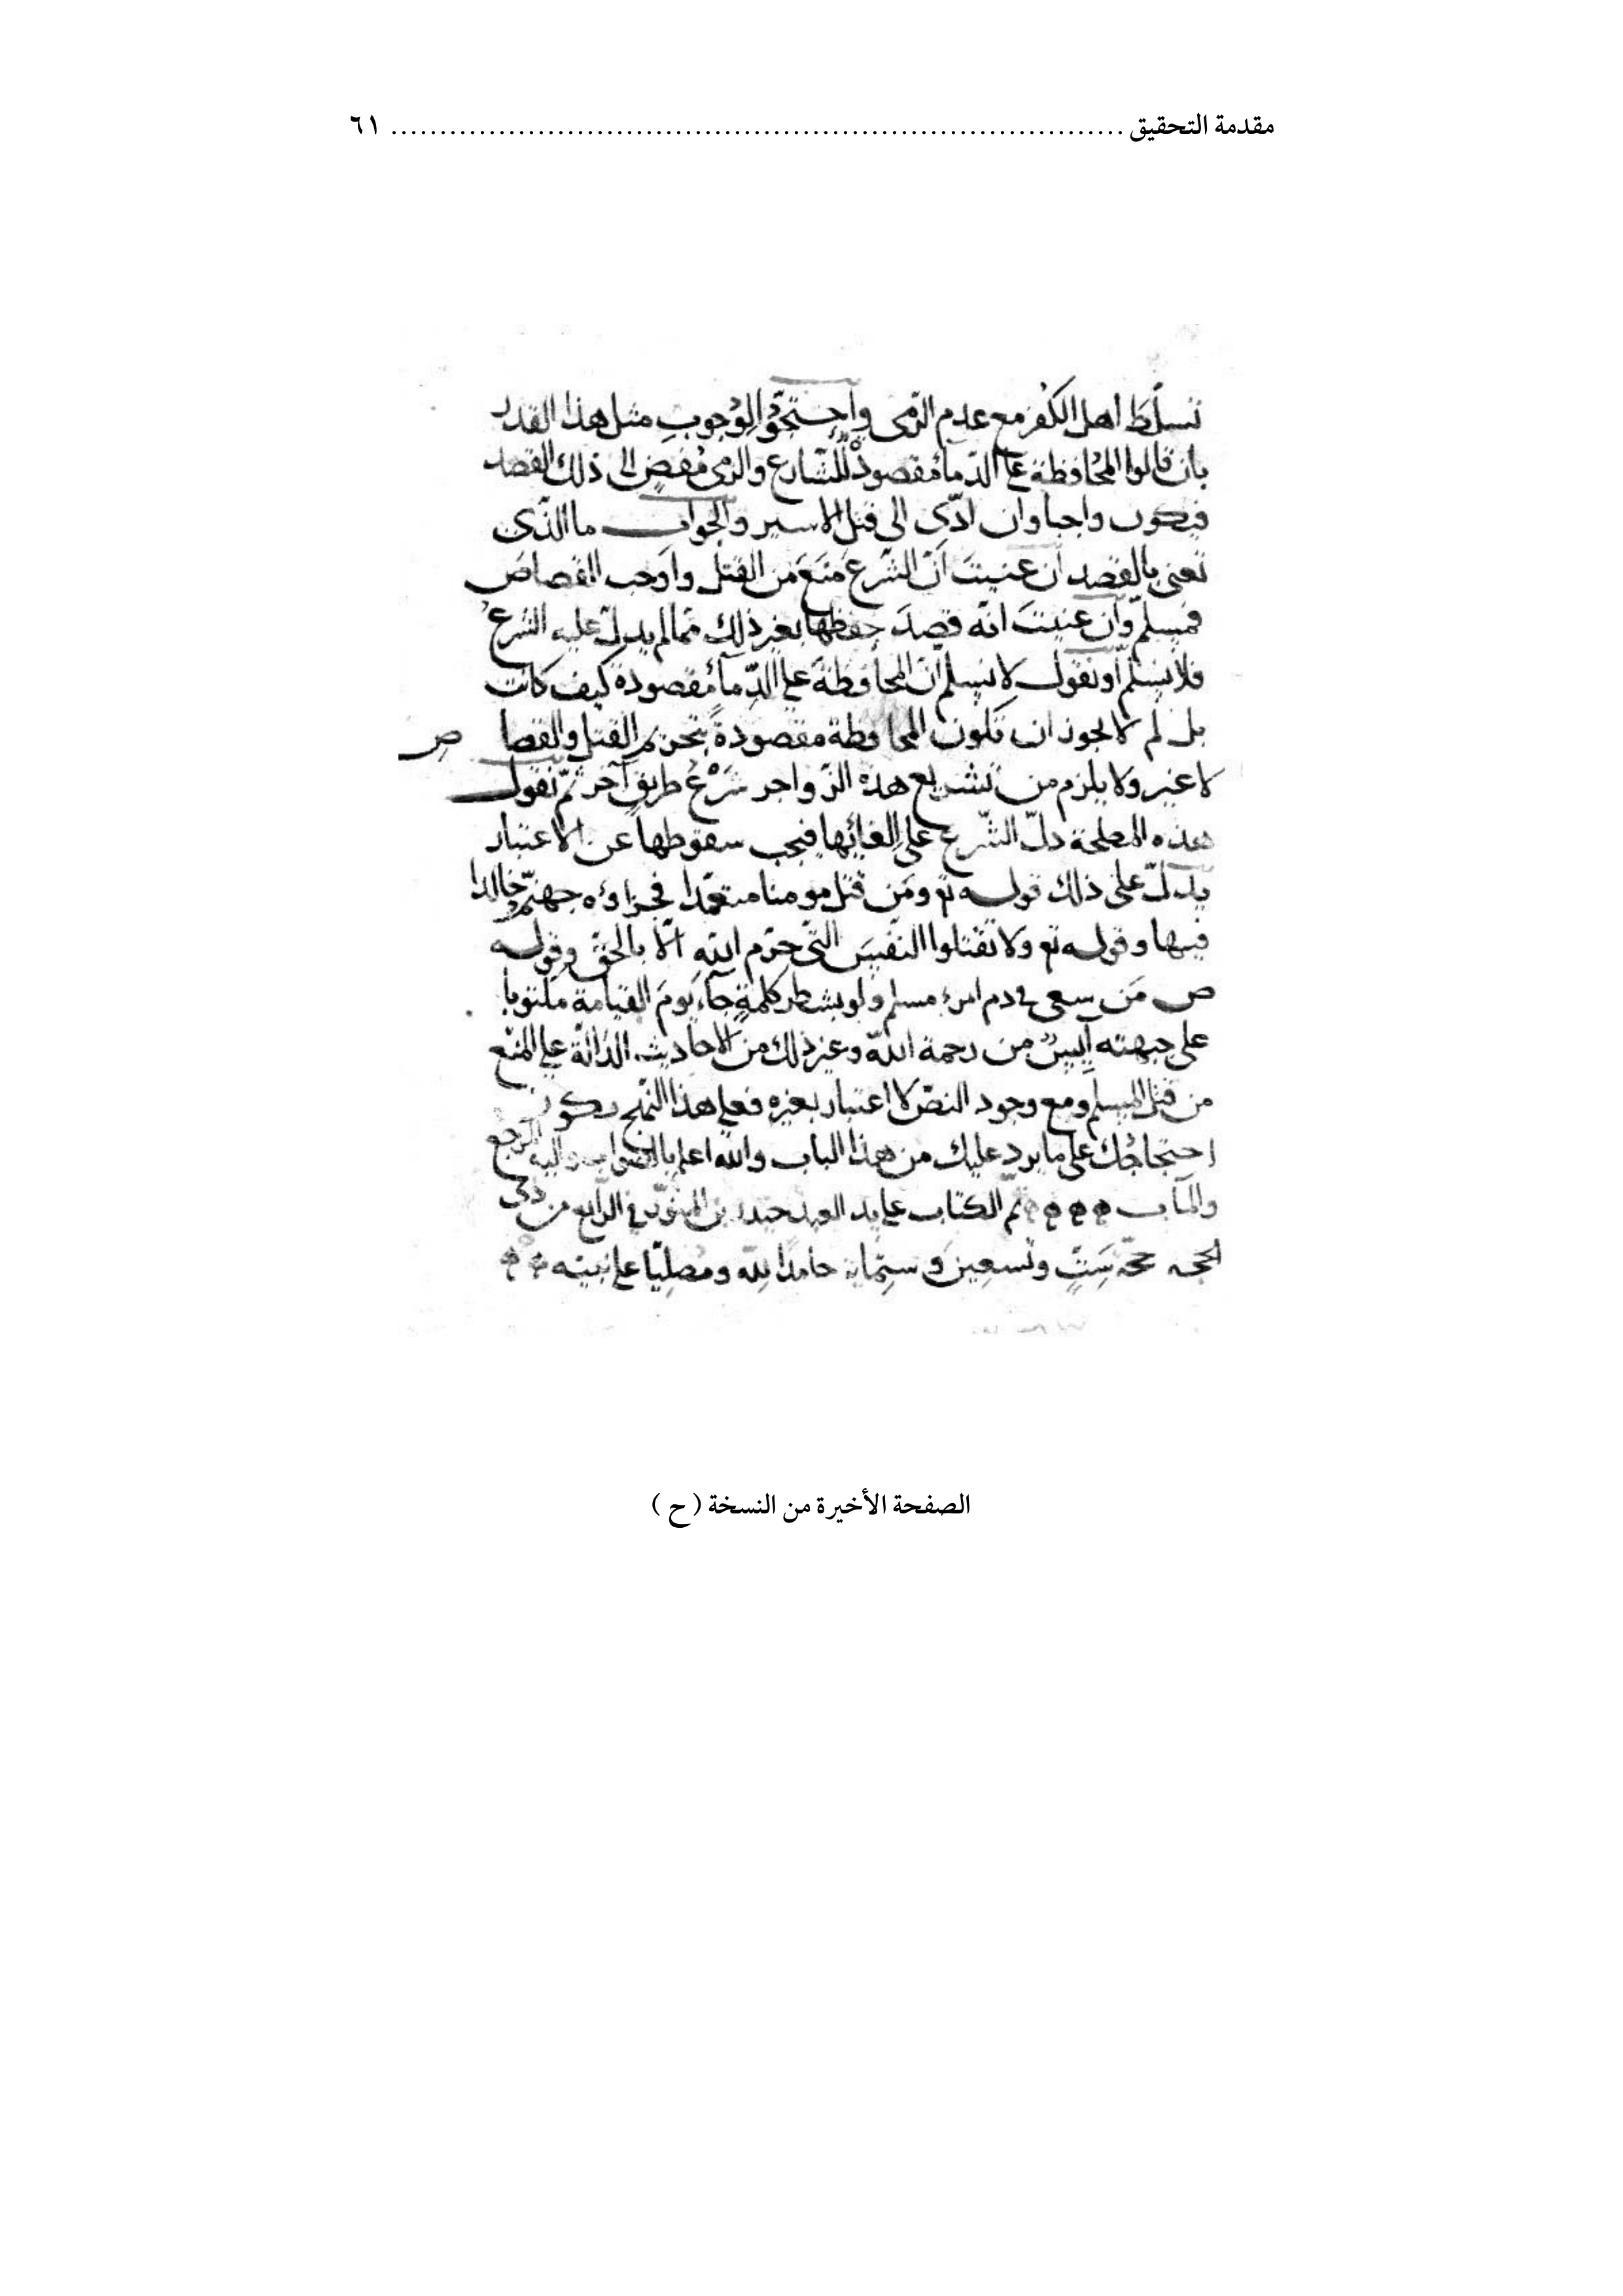 مقدمة التحقيق ........................................................................... ٦١
تسلّط أهل الكفر مع عدم الرّمى واحتجّوا لوُجوبِ مثل هذا القدر
بان قالوا المحُافظة على الدّماءُ مقصودٌ للشّارع والرّمى مُفضٍ الى ذلك القصد
فيكون واجبا وان ادّى الى قتل الاسير والجواب ما الذّى
تعنى بالقصد ان عنيتَ انّ الشّرع مَنَعَ من القتل واوجب القصاصَ
فمسلم وان عنيتَ انّه قصدَ حفظها بغير ذلك ممّا لم يدلّ عليه الشرعُ
فلا نسلّم او نقول لا نسلّم انّ المحافظة على الدّماء مقصودة كيف كانت
بل لم لا يجوز ان تكون المحافظة مقصودةً بتحريم القتل والقصاص
لا غير ولا يلزم من تشريع هذه الزّواجر شَرْعُ طريقٍ آخر ثمّ نقول
هذه المصلحة دلّ الشّرع على الغائها فيجب سقوطها عن الاعتبار
يدلّ على ذلك قوله تع ومَن قتل مومنا متعمّدا فجزاؤه جهنّم خالدا
فيها وقوله تع ولا تقتلوا النفسَ التى حرّم الله الّا بالحقّ وقوله
ص مَن سعى فى دم امرء مسلم ولو بشطر كلمةٍ جاء يومَ القيامة مكتوبا
على جبهته آيسٌ من رحمة الله وغير ذلك من الاحاديث الدّالّة على المنْع
من قتل المسلم ومع وجود النصّ لا اعتبار بغيره فعلى هذا النّهج يكون
احتجاجُك على ما يرد عليك من هذا الباب والله اعلم بالصّواب واليه المرجع
والمآب تمّ الكتاب على يد العبد حيدر بن فى الرّابع من ذى
الحجه حجّة سَتٍّ وتسعين وستمائة حامدا لله ومصليّا على نبيّه
الصفحة الأخيرة من النسخة ( ح )